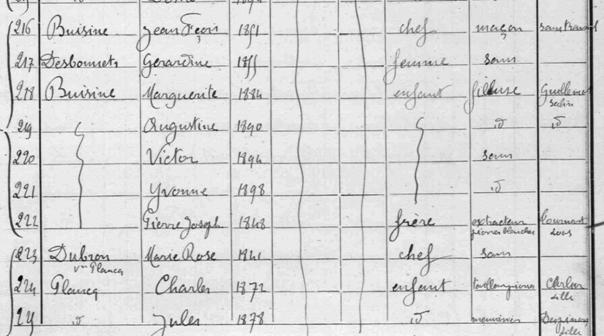 216 Buisine Jean Fçois 1851 chef maçon sans travail
217 Desbonnets Gérardine 1855 femme sans
218 Buisine Marguerite 1884 enfant fileuse Guillemet
219 Augustine 1890 id id
220 Victor 1894 sans
221 Yvonne 1898 id
222 Pierre Joseph 1848 frère extracteur
pierres blanches
223 Dubron Marie Rose 1841 chef sans
Vve Plancq
224 Plancq Charles 1872 enfant
Lille
id Jules 1878 id
Lille